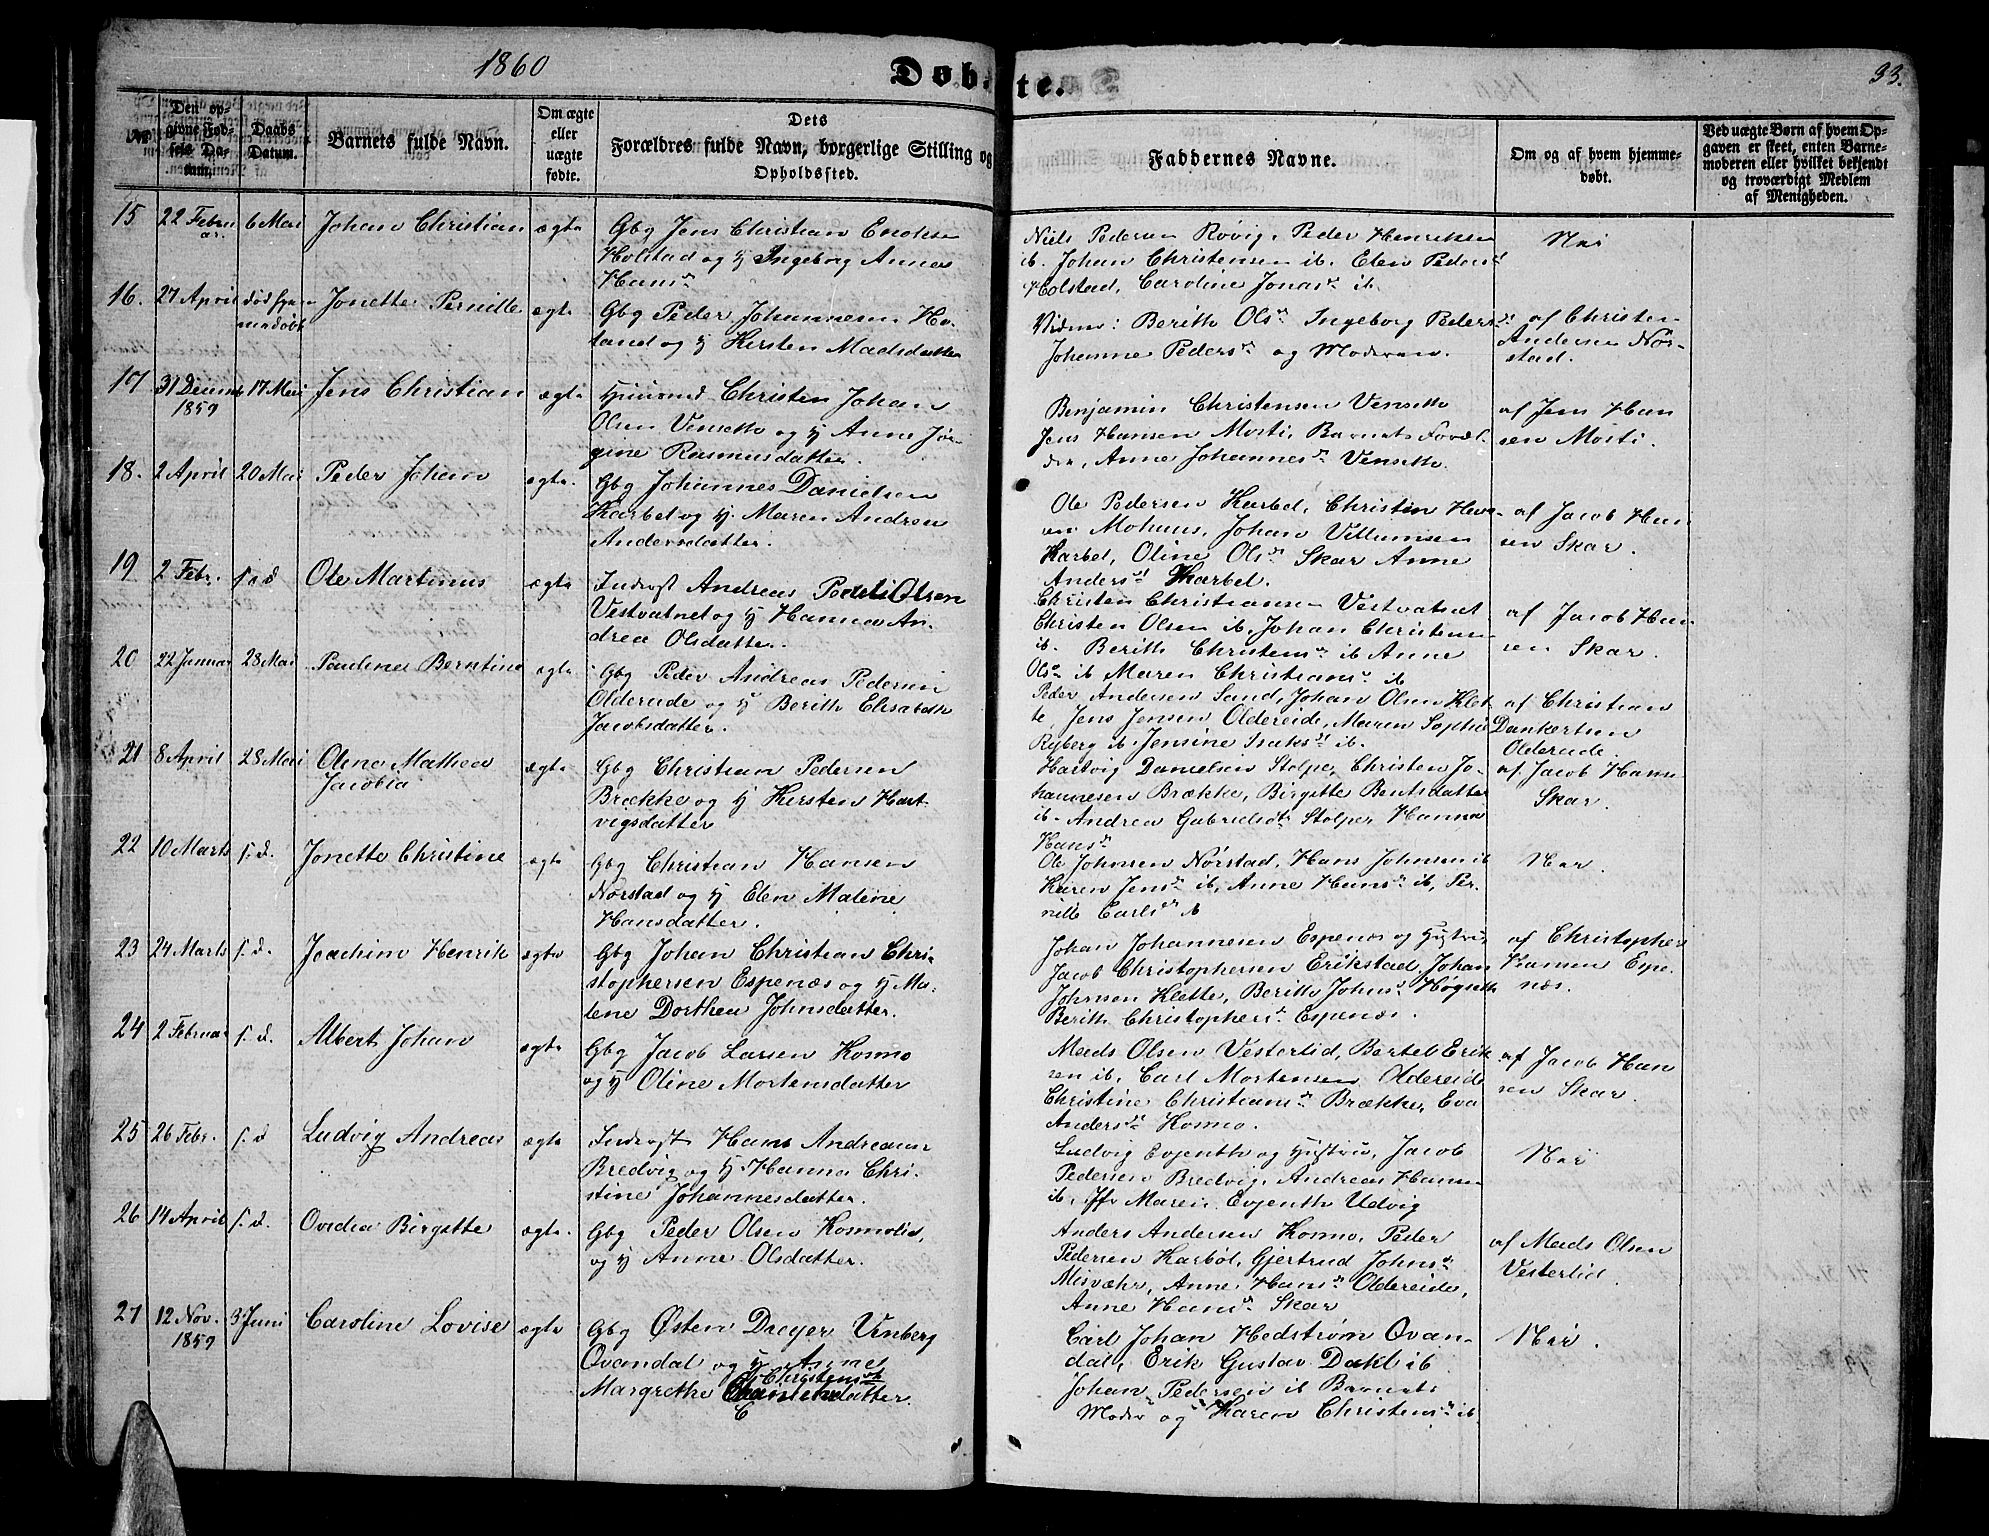 1860
Døb-te.
33.
№
Den op-
givne Fød-
sels Da-
tum.
Daabs
Datum.
Barnets fulde Navn.
Om ægte
eller
uægte
fødte.
Dets
Forældres fulde Navn, borgerlige Stilling og
Opholdssted.
Faddernes Navne.
Om og af hvem hjemme-
døbt.
Ved uægte Børn af hvem Op-
gaven er skeet, enten Barne-
moderen eller hvilket bekjendt
og troværdigt Medlem
af Menigheden.
15 22 Febru 6 Mai Johan Christian ægte Gbg Jens Christian Enoksen
ar.
Holstad og H Ingeborg Anna
Hansdr
Niels Pedersen Røvig, Peder Henriksen
ib. Johan Christensen ib. Elen Peders
Holstad, Caroline Jonasdr ib.
Nei
16. 27 April død hjem Jonette Pernille ægte Gbg Peder Johannesen Ho-
medøbt
land og H Kirsten Madsdatter
Vidner: Berith Olsdr Ingeborg Pedersdr
Johanne Pedersdr og Moderen.
af Christen
Andersen Nor-
stad.
17 31 Decemb 17 Mai Jens Christian ægte Huusmd Christen Johan
1859
Olsen Vensetto og H Anne Jør-
gine Rasmusdatter.
Benjamin Christensen Vensetto
Jens Hansen Mosti, Barnets Foræl-
dre, Anne Johannesdr Vensetto.
af Jens Han
sen Mosti.
18. 2 April 20 Mai Peder Johan ægte. Gbg Johannes Danielsen
Karbøl og H. Maren Andrea
Andersdatter.
Ole Pedersen Karbøl, Christin Han-
sen Mohuus, Johan Villumsen
Karbøl, Oline Olsdr Skar Anne
Andersdr Karbøl.
af Jacob Han
sen Skar.
19 2 Febr. s. d Ole Martinus ægte Inderst Andreas Olsen
Vestvatnet og H Hanna An-
drea Olsdatter.
Christen Christiansen Vestvatnet
Christen Olsen ib, Johan Christensen
ib. Berith Christensdr ib Anne
Olsdr ib Maren Christiansdr ib
af Jacob Han
sen Skar.
20 22 Januar 28 Mai Paulina Berntine ægte Gbg Peder Andreas Pedersen
Oldereide og H Berith Elisabeth
Jacobsdatter.
Peder Andersen Sand, Johan Olsen Klet
te, Jens Jensen Oldereide, Maren Sophie
Ryberg ib. Jensine Isaksdr ib.
af Christian
Dankertsen
Oldereide.
21 8 April 28 Mai Olina Mathea ægte Gbg Christian Pedersen
Jacobia
Brække og H Kirsten Hart-
vigsdatter
Hartvig Danielsen Stolpe, Christen Jo-
hannesen Brække, Birgitte Bentsdatter
ib. Andrea Gabrielsdr Stolpe, Hanna
Hansdr
af. Jacob Hans
Skar.
22 10 Marts s. d. Jonette Christine ægte Gbg Christian Hansen
Norstad og H Elen Maline
Hansdatter.
Ole Johnsen Nørstad, Hans Johnsen ib
Karen Jensdr ib, Anne Hansdr ib, Per-
nille Carlsdr ib
Nei.
23 24 Marts s. d. Joachim Henrik ægte Gbg Johan Christian Chri-
stophersen Espenæs og H Ma-
lene Dorthea Johnsdatter.
Johan Johannesen Espenæs og Hustru,
Jacob Christophersen Erikstad, Johan
Johnsen Klette, Berith Johnsdr Høgseth
Berith Christophersdr Espenæs.
af Christopher
Hansen Espe-
næs.
24 2 Februar s. d. Albert Johan ægte Gbg Jacob Larsen Kosmo
og H Oline Mortensdatter
Mads Olsen Vesterlid, Bertel Erik
sen ib, Carl Mortensen Oldereide
Christine Christiansdr Brække, Eva
Andersdr Kosmo.
af Jacob Han
sen Skar.
25 26 Febr. s. d Ludvig Andreas ægte Inderst Hans Andreasen
Bredvig og H. Hanna Chri-
stine Johannesdatter.
Ludvig Evjenth og Hustru, Jacob
Pedersen Bredvig, Andreas Hansen
ib. Jfr Maren Evjenth Udvig
Nei
26 14 April s. d. Ovidia Birgitte ægte. Gbg Peder Olsen Kosmolid,
og H Anne Olsdatter.
Anders Andersen Kosmo, Peder
Pedersen Karbøl, Gjertrud Johnsdr
Misvæhr, Anne Hansdr Oldereide,
Anne Hansdr Skar
af Mads Olsen
Vesterlid.
27 12 Nov. 3 Juni Caroline Lovise ægte Gbg Østen Dreyer Venberg
1859
Ovandal og H Anne
Christensdr
Margrethe
Carl Johan Hedstrøm Ovan-
dal, Erik Gustav Dahl ib
Johan Pedersen ib Barnets
Moder og Karen Christensdr ib.
Nei.